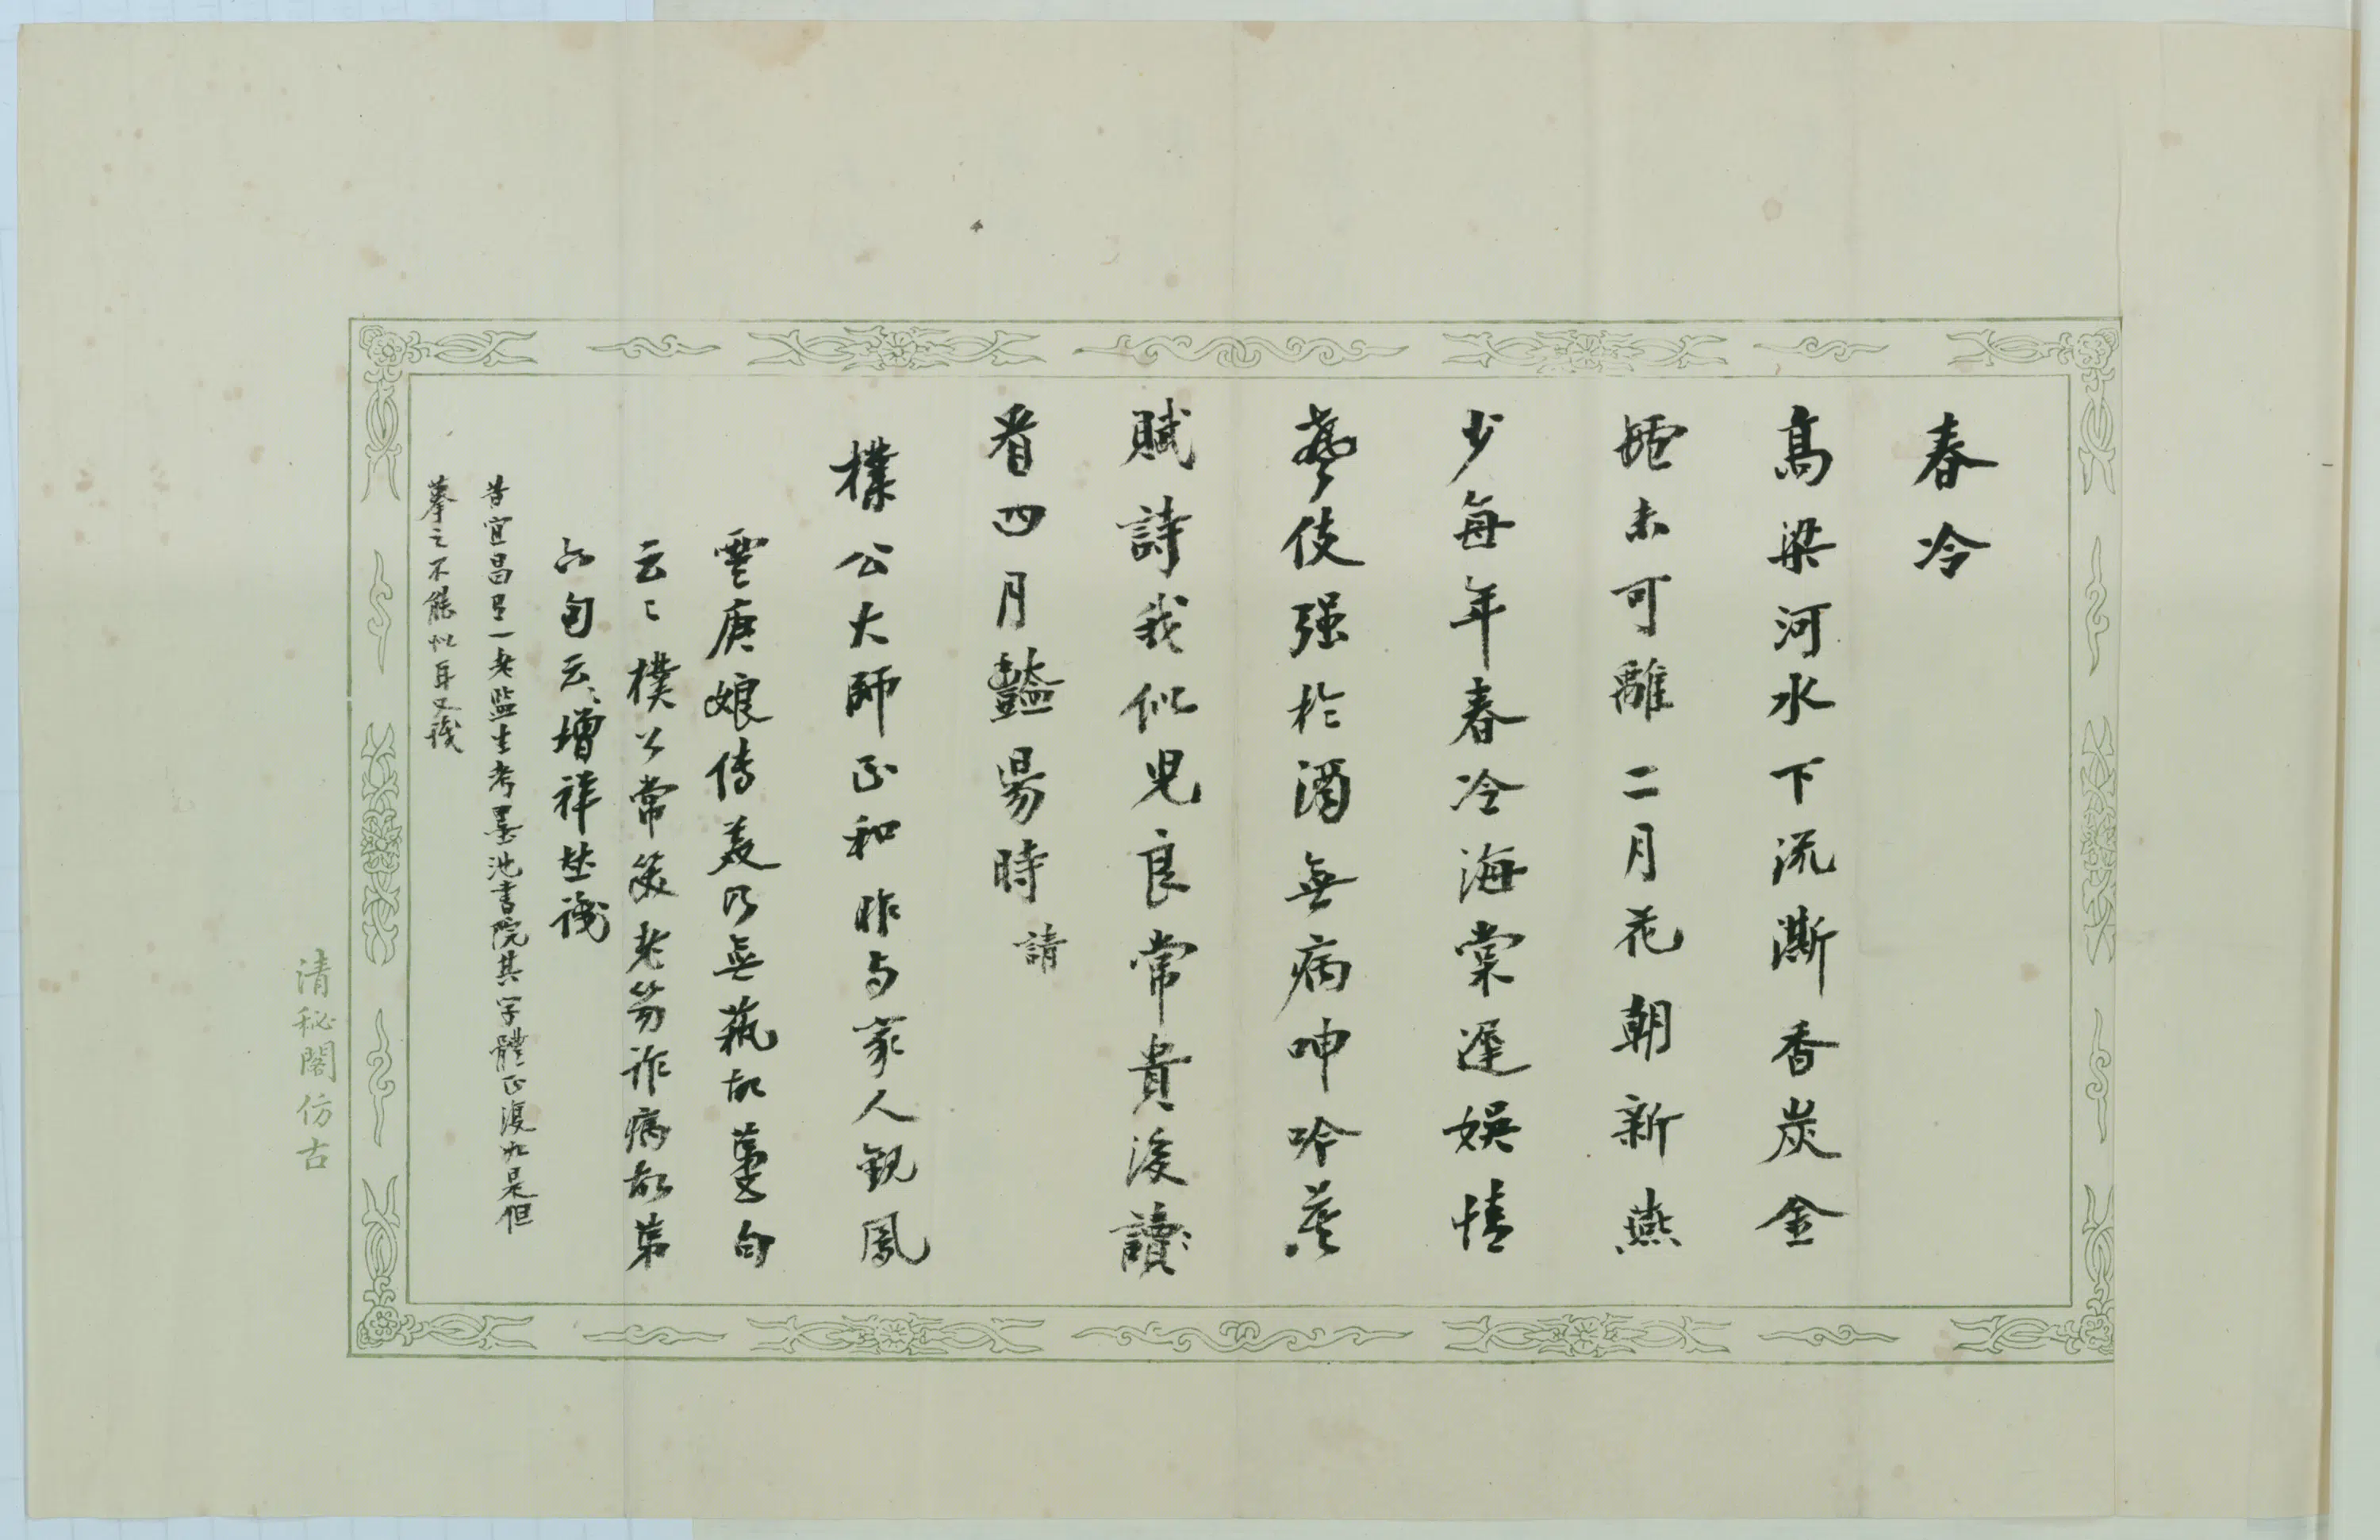 春冷
高梁河水下流澌香炭金
貔未可離二月花朝新燕
少每年春冷海棠遲娛情
藝伎强於酒無病呻吟蓋
賦詩我似兒良常貴後讀〻
看四月豔昜時 請
樸公大師正和 昨与家人觀鳳
雲庚娘傳美乃無蓺故蔓句
云〻樸公常籨老易詐病故第
六句云〻增祥坿識
昔宜昌有一老監生考墨池書院其字體正復如是但
摹之不能似耳又識
清秘閣仿古